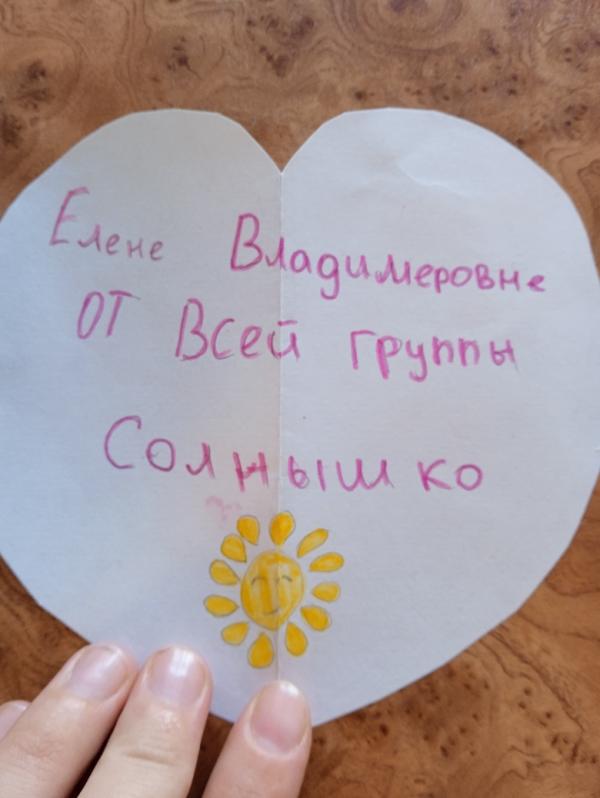 Елене Владимеровне
от Всей группы
Солнышко